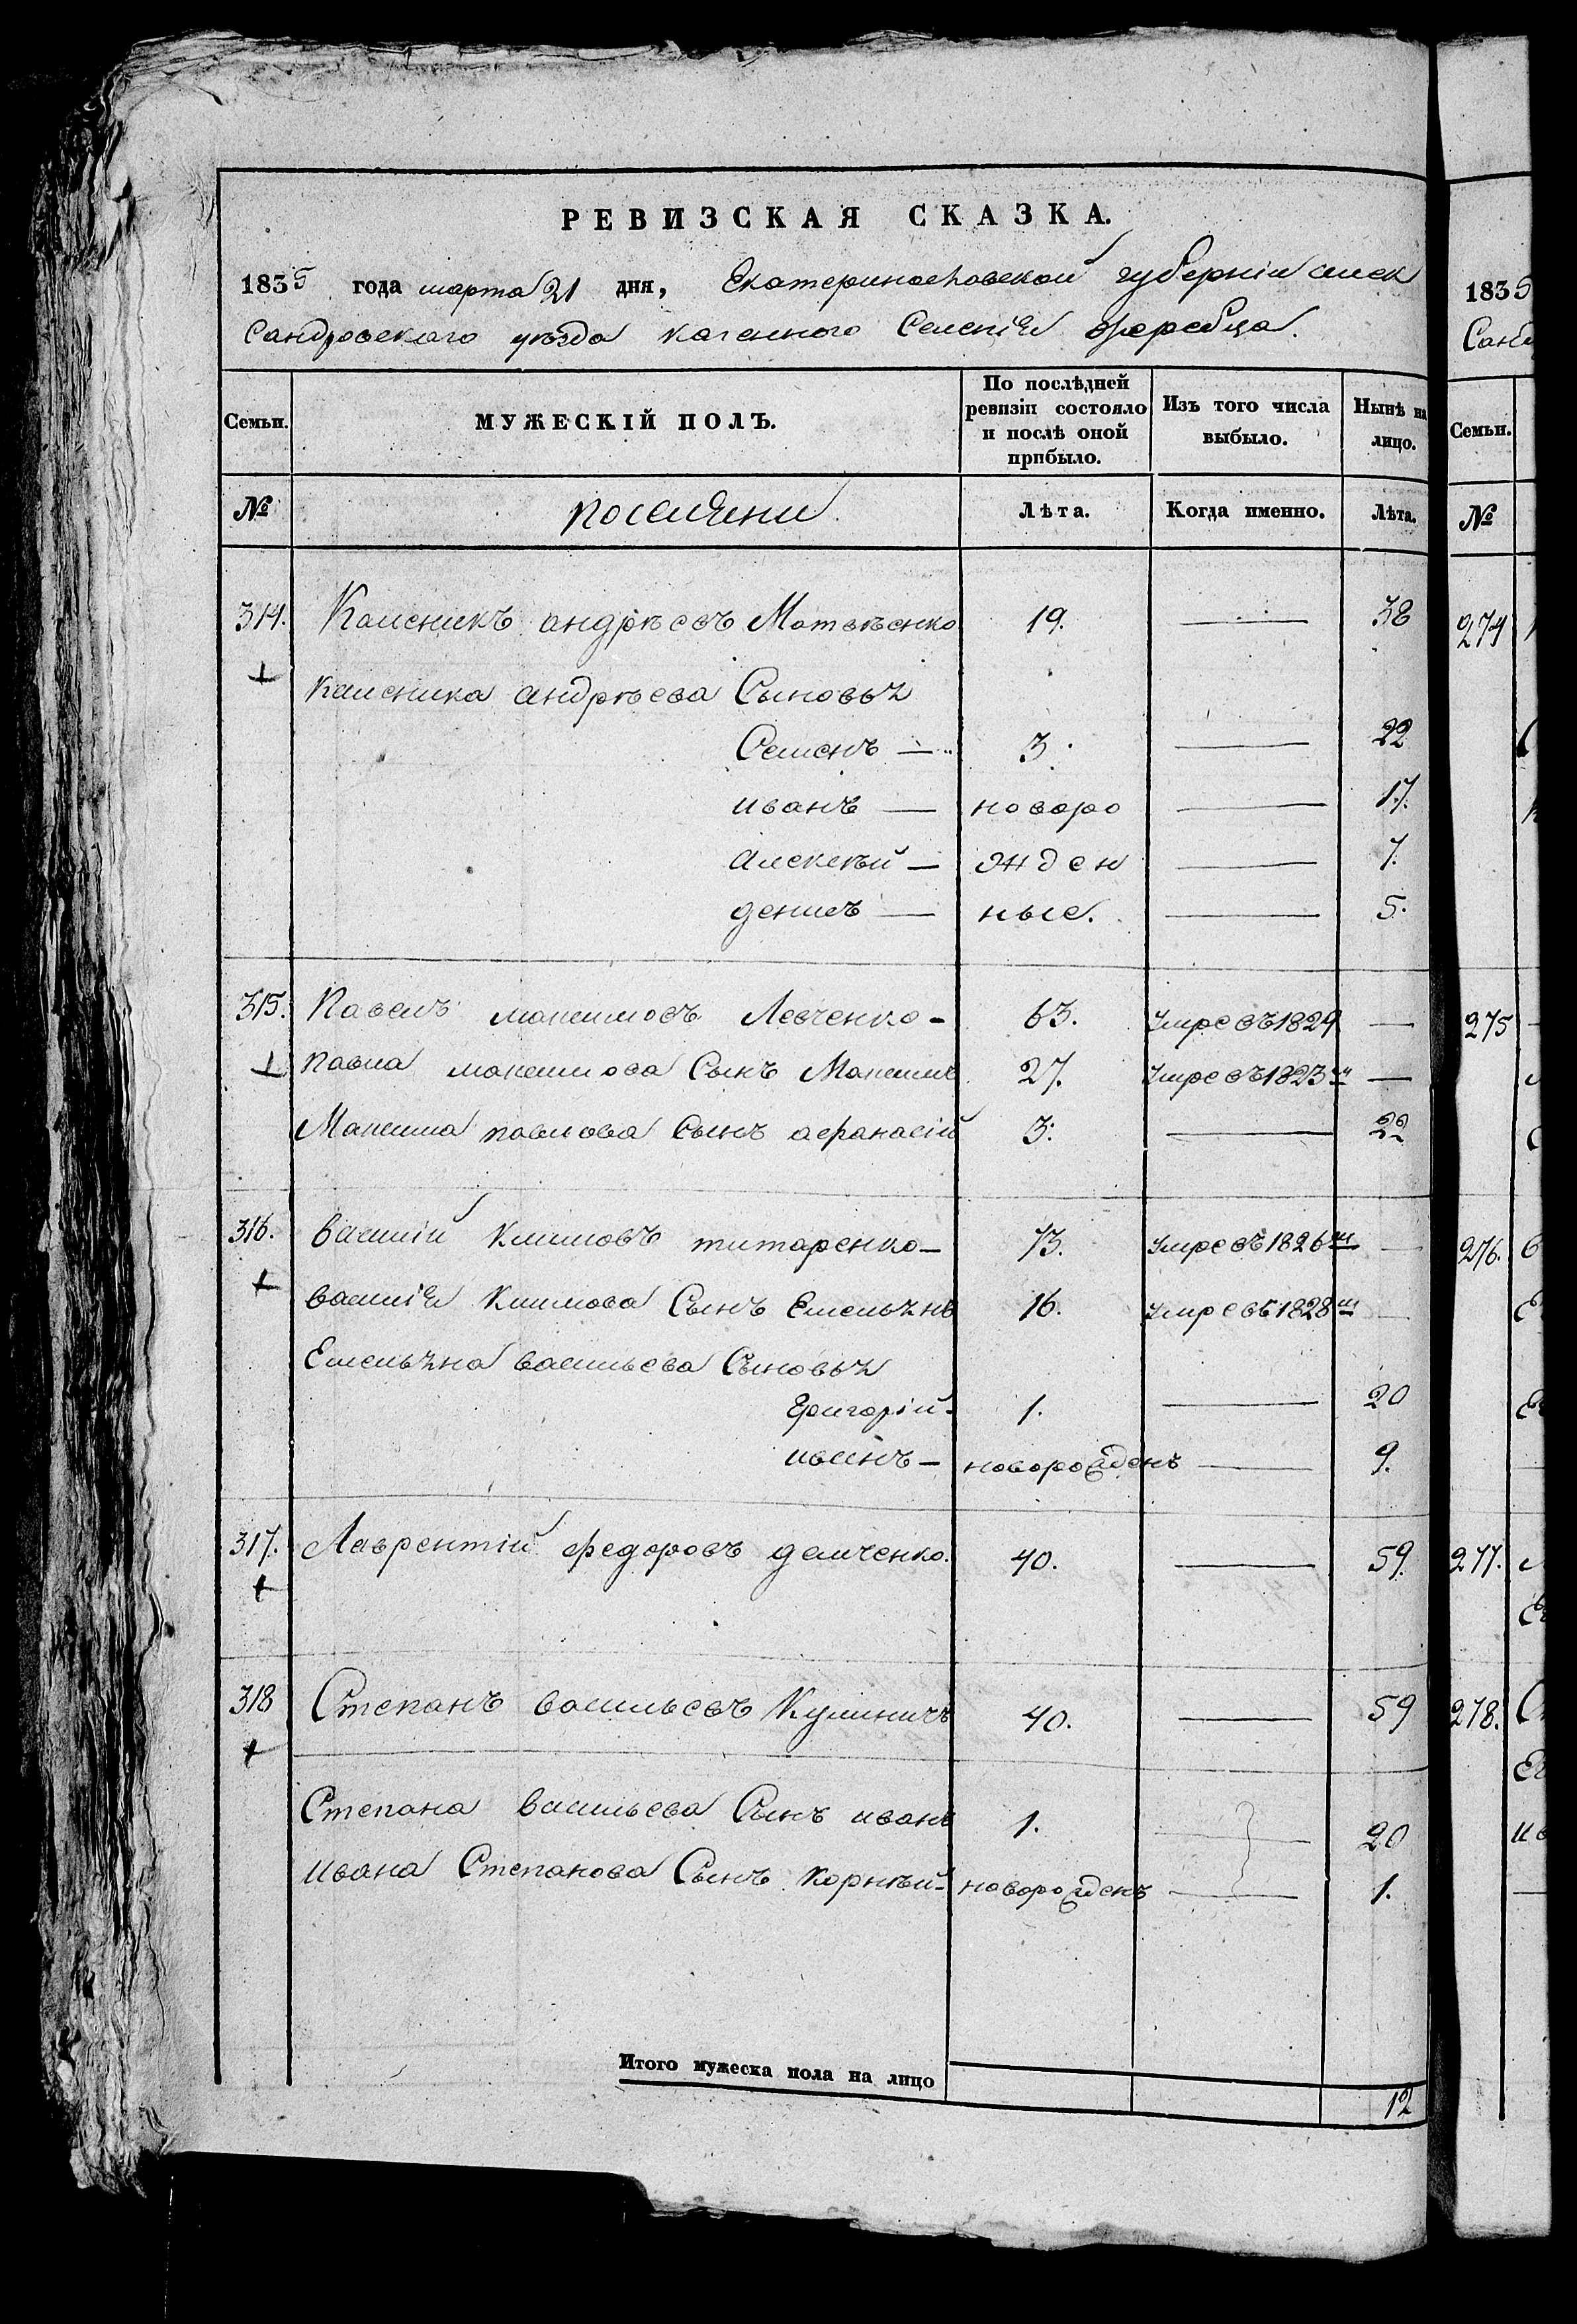 РЕВИЗСКАЯ СКАЗКА.
1835 года марта 21 дня, Екатеринославской губерніи алек
сандровского уѣзда казенного Селенія жеребца.
Семьи. МУЖЕСКІЙ ПОЛЪ. По послѣдней ревизіи состояло и послѣ оной прибыло. Изъ того числа выбыло. Нынѣ на лицо.
№ поселяни Лѣта. Когда именно. Лѣта.
314. Каленикъ андрѣевъ Матвѣенко 19. — 38
каленика андрѣева Сыновья
Семенъ — 3. — 22
иванъ — новоро — 17.
алексѣй — жден — 7.
денисъ — ные. — 5.
315. Павелъ максимовъ Левченко - 63. Умре въ 1829 —
павла максимова Сынъ Максимъ 27. Умре въ 1823м —
Максима павлова Сынъ афанасій 3. — 22
316. василій климовъ титаренко — 73. умре въ 1826м —
василія климова Сынъ Емельянъ 16. умре въ 1828м —
Емельяна васильева Сыновья
Григорій - 1. — 20
— новорожденъ — 9.
317. Лаврентій федоровъ демченко. 40. — 59.
318 Степанъ васильевъ 40. — 59
Степана васильева Сынъ иванъ 1. — 20
ивана Степанова Сынъ корнѣй - новорожденъ — 1.
Итого мужеска пола на лицо 12
1835
Санд
Семьи.
№
274
275
276.
277.
278.